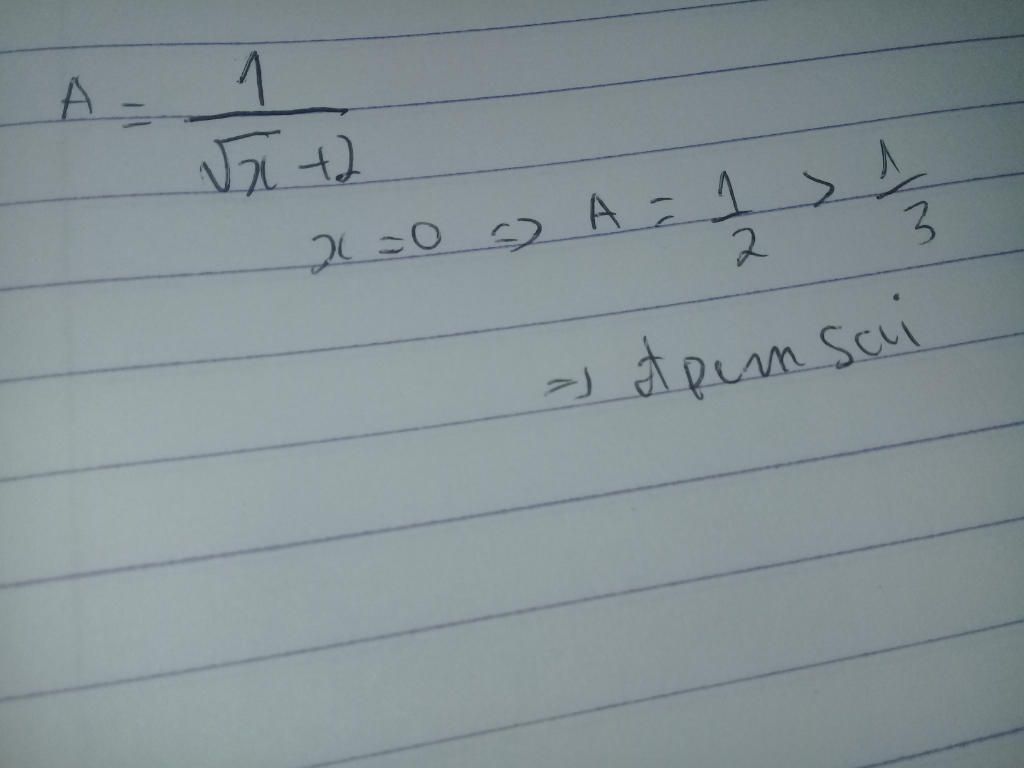 A = 1/(√x + 2)
x = 0 => A = 1/2 > 1/3
=> đpcm sai